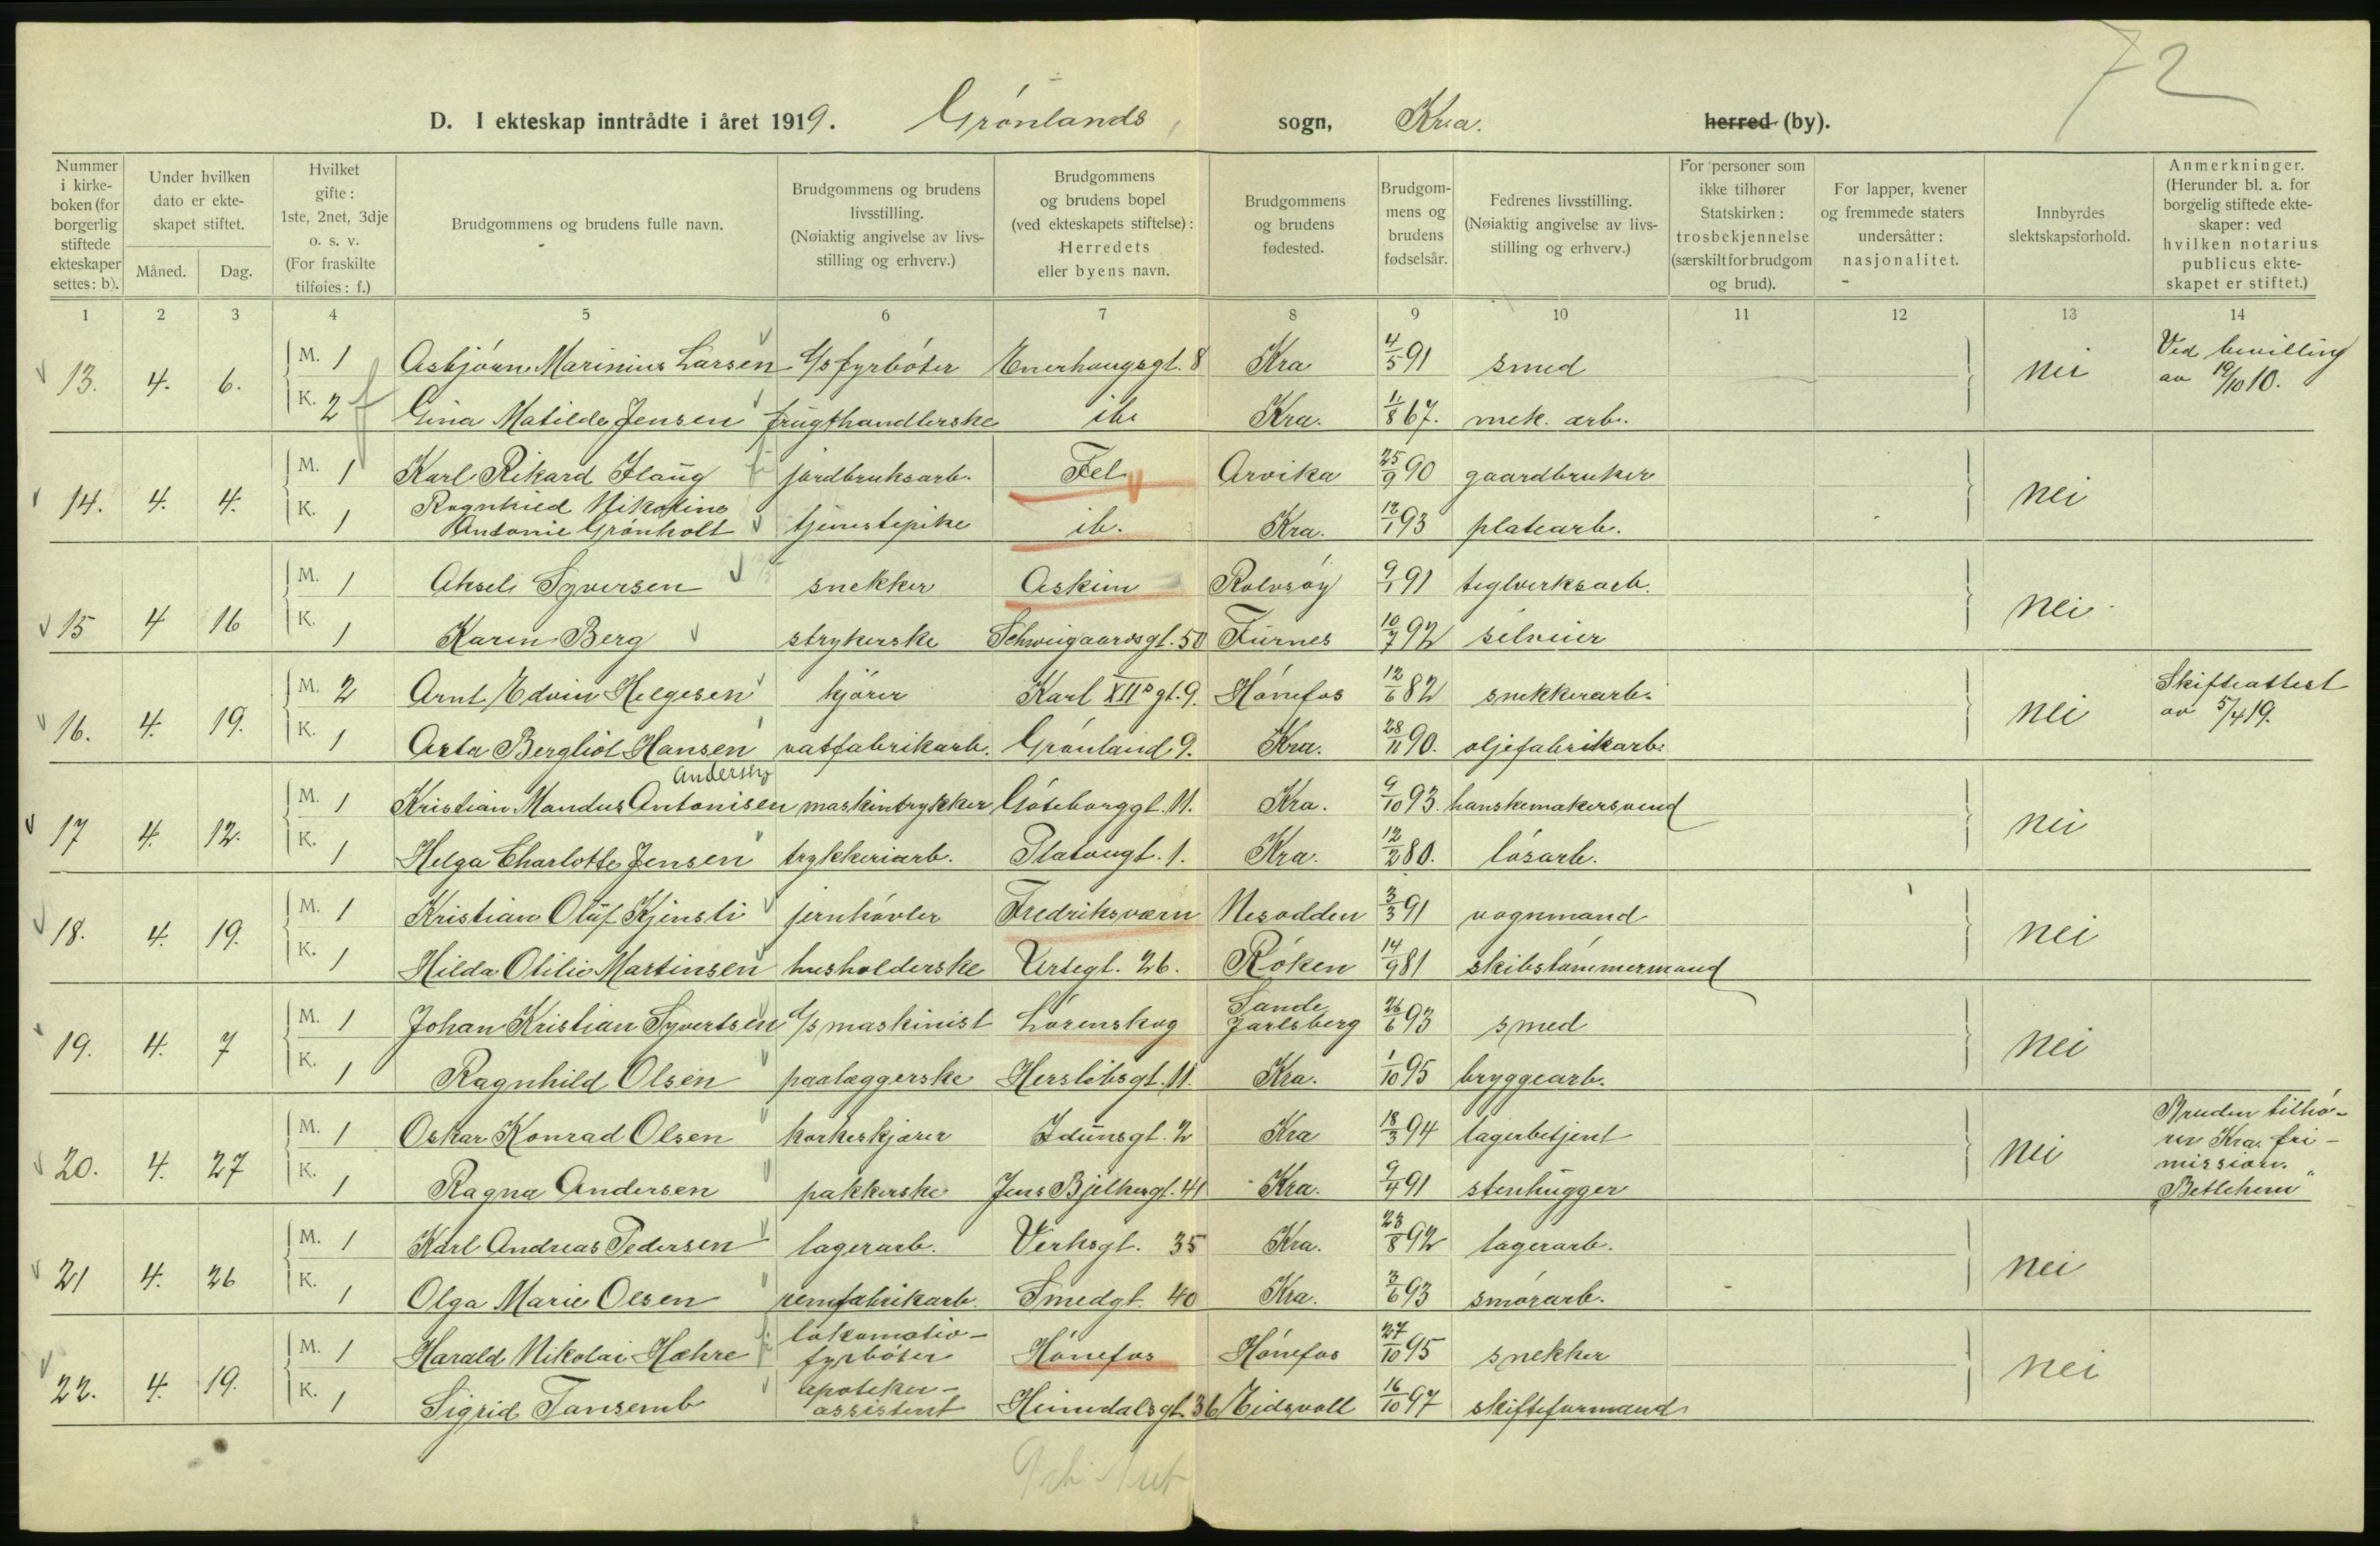 72
D. I ekteskap inntrådte i året 1919. Grønlands sogn, Kra. herred (by).
Nummer i kirkeboken (for borgerlig stiftede ekteskaper settes: b).
Under hvilken dato er ekteskapet stiftet.
Måned.
Dag.
Hvilket gifte: 1ste, 2net, 3dje o. s. v. (For fraskilte tilføies: f.)
Brudgommens og brudens fulle navn.
Brudgommens og brudens livsstilling. (Nøiaktig angivelse av livsstilling og erhverv.)
Brudgommens og brudens bopel (ved ekteskapets stiftelse): Herredets eller byens navn.
Brudgommens og brudens fødested.
Brudgommens og brudens fødselsår.
Fedrenes livsstilling. (Nøiaktig angivelse av livsstilling og erhverv.)
For personer som ikke tilhører Statskirken: trosbekjennelse (særskilt for brudgom og brud).
For lapper, kvener og fremmede staters undersåtter: nasjonalitet.
Innbyrdes slektskapsforhold.
Anmerkninger. (Herunder bl. a. for borgelig stiftede ekteskaper: ved hvilken notarius publicus ekteskapet er stiftet.)
1 2 3 4 5 6 7 8 9 10 11 12 13 14
13. 4. 6. M. 1 Asbjörn Marinius Larsen d/s fyrböter Enerhaugsgt. 8 Kra 4/5 91 smed nei Ved bevilling av 19/10 10.
K. 2 f Gina Matilde Jensen frugthandlerske ib. Kra. 11/8 67. mek. arb.
14. 4. 4. M. 1 Karl Rikard Haug jordbruksarb. Fel Arvika 25/9 90 gaardbruker nei
K. 1 Ragnhild Nikoline Antonie Grönholt tjenestepike ib. Kra. 12/1 93 platearb.
15 4 16 M. 1 Aksel Syversen snekker Askim Rolvsöy 9/1 91 teglverksarb. nei
K. 1 Karen Berg strykerske Schweigaardsgt. 50 Furnes 10/7 92 selveier
16. 4. 19. M. 2 Arnt Edvin Helgesen kjörer Karl XIIs gt. 9. Hönefos 12/6 82 snekkerarb. nei Skifteattest av 5/4 19.
K. 1 Asta Bergliot Hansen vatfabrikarb. Grönland 9. Kra. 28/11 90. oljefabrikarb.
Andersen
17 4. 12. M. 1 Kristian Mandus Antonisen maskintrykker Göteborggt. 11. Kra. 9/10 93. hanskemakersvend nei
K. 1 Helga Charlotte Jensen trykkeriarb. Platougt. 1. Kra. 12/2 80. lösarb.
18. 4. 19. M. 1 Kristian Oluf Kjensli jernhövler Fredriksværn Nesodden 3/3 91 vognmand nei
K. 1 Hilda Otilie Martinsen husholderske Urtegt. 26. Röken 14/9 81 skibstömmermand
19. 4. 7 M. 1 Johan Kristian Syvertsen d/s maskinist Lörenskog Sande Jarlsberg 26/6 93 smed nei
K. 1 Ragnhild Olsen paalæggerske Herslebsgt. 11. Kra. 1/10 95 bryggearb.
20. 4. 27 M. 1 Oskar Konrad Olsen korkeskjærer Idunsgt. 2 Kra 18/3 94 lagerbetjent nei Bruden tilhö-
rer Kra. fri-
mission.
"Betlehem"
K. 1 Ragna Andersen pakkerske Jens Bjelkesgt. 41 Kra. 9/4 91 stenhugger
21 4. 26 M. 1 Karl Andreas Pedersen lagerarb. Verksgt. 35 Kra. 23/8 92 lagerarb. nei
K. 1 Olga Marie Olsen remfabrikarb. Smedgt. 40 Kra. 3/6 93 smörarb.
22. 4. 19. M. 1 Harald Nikolai Hæhre lokomotiv-
fyrböter Hönefos Hönefos 27/10 95 snekker nei
K. 1 Sigrid Tansemb apoteker-
assistent Heimdalsgt. 36 Eidsvoll 16/10 97 skifteformand